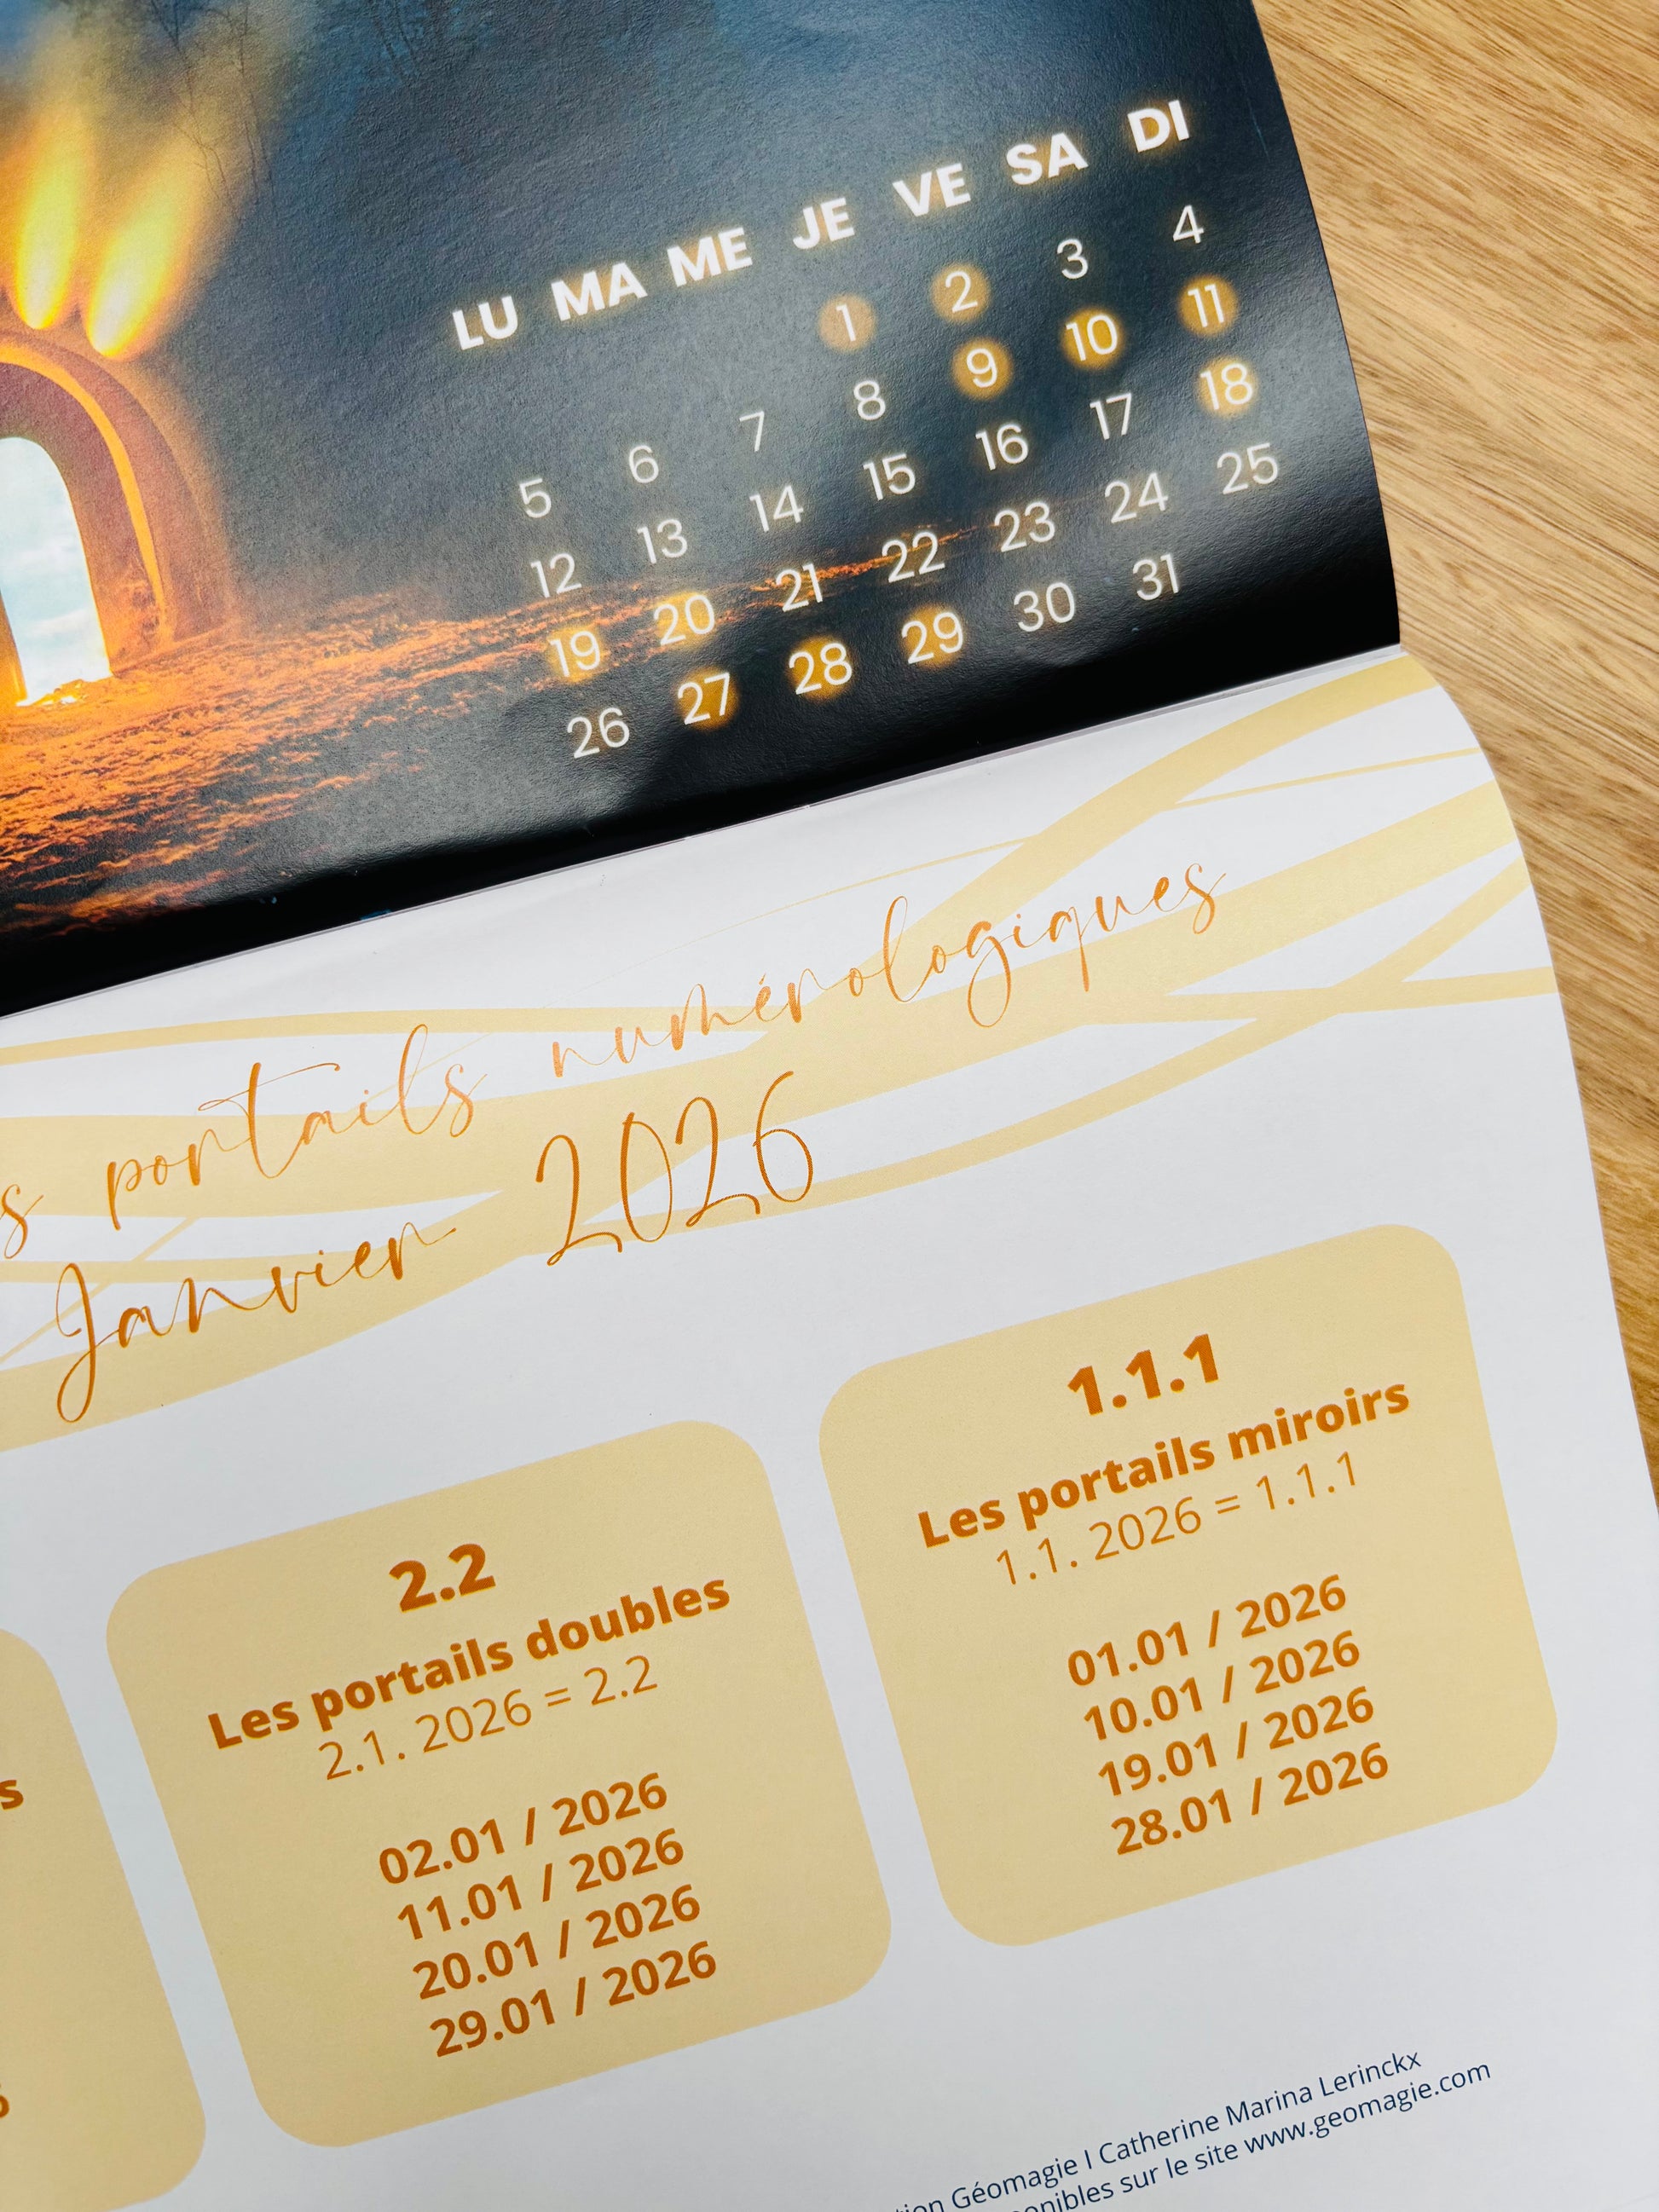 LU MA ME JE VE SA DI
1 2 3 4
5 6 7 8 9 10 11
12 13 14 15 16 17 18
19 20 21 22 23 24 25
26 27 28 29 30 31
portails numérologiques
Janvier 2026
2.2
Les portails doubles
2.1. 2026 = 2.2
02.01 / 2026
11.01 / 2026
20.01 / 2026
29.01 / 2026
1.1.1
Les portails miroirs
1.1. 2026 = 1.1.1
01.01 / 2026
10.01 / 2026
19.01 / 2026
28.01 / 2026
Géomagie I Catherine Marina Lerinckx
sur le site www.geomagie.com